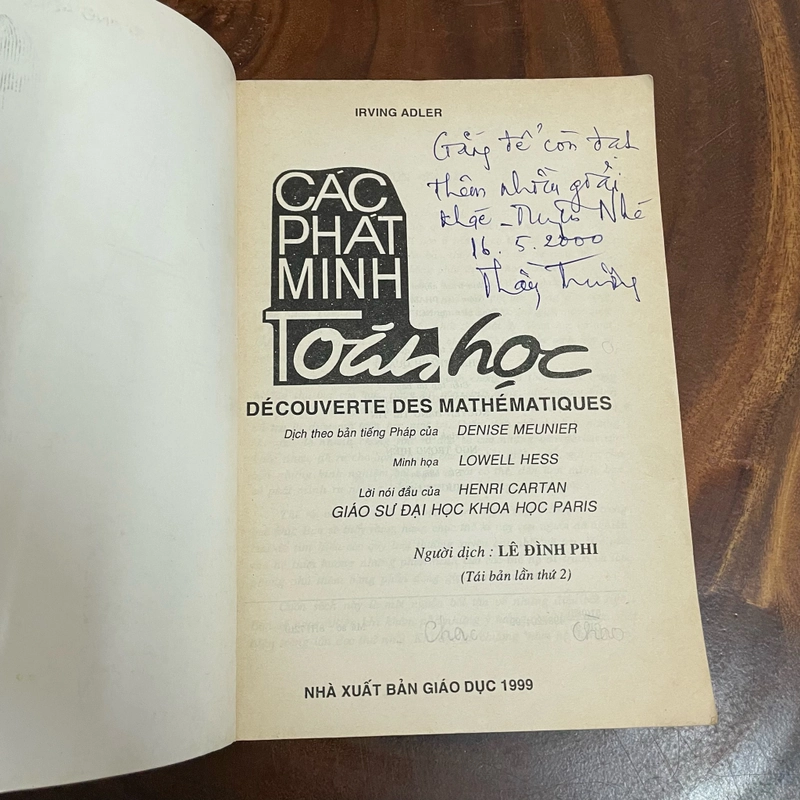 IRVING ADLER
Gắng để còn đạt
thêm nhiều giải
khác - Nhé
16.5.2000
Thầy Trường
CÁC
PHÁT
MINH
Toán học
DÉCOUVERTE DES MATHÉMATIQUES
Dịch theo bản tiếng Pháp của DENISE MEUNIER
Minh họa LOWELL HESS
Lời nói đầu của HENRI CARTAN
GIÁO SƯ ĐẠI HỌC KHOA HỌC PARIS
Người dịch : LÊ ĐÌNH PHI
(Tái bản lần thứ 2)
NHÀ XUẤT BẢN GIÁO DỤC 1999